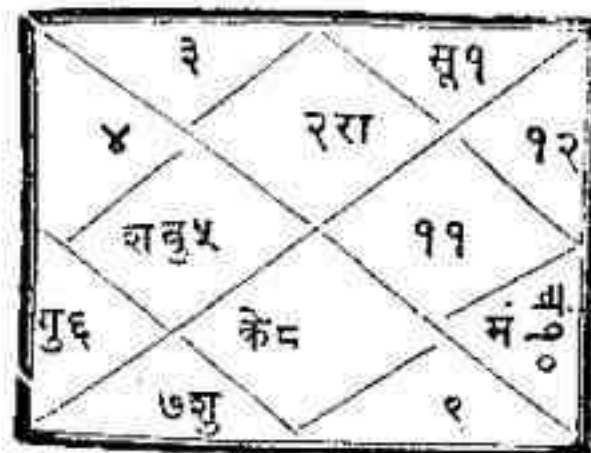 ३
सू१
४
२रा
१२
शबु५
११
गु६
के८
मं
१०
७शु
९